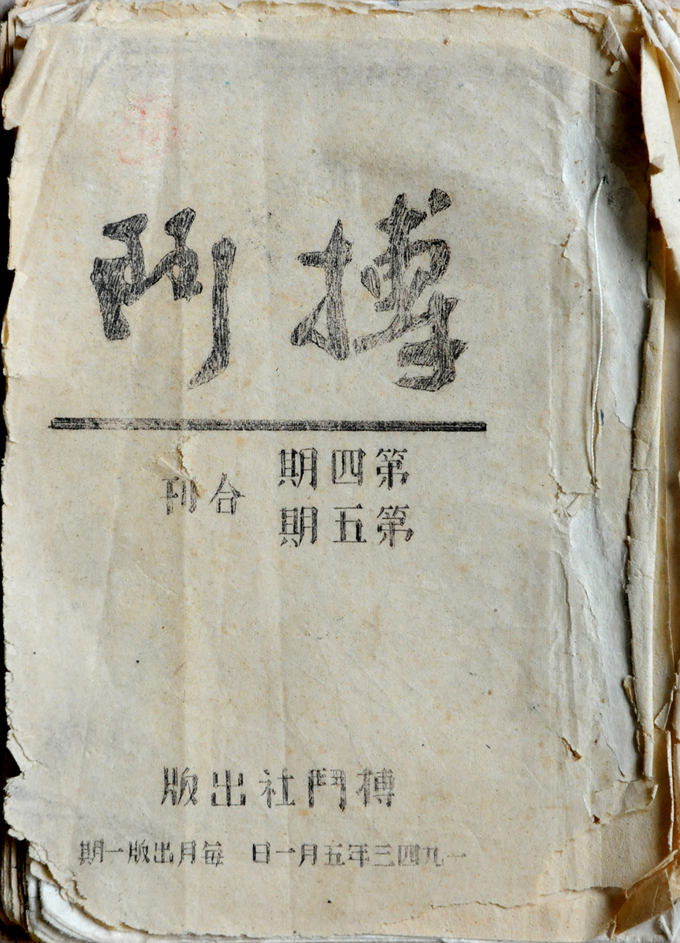 搏鬥
第四期
第五期
合刊
搏鬥社出版
一九四三年五月一日 每月出版一期